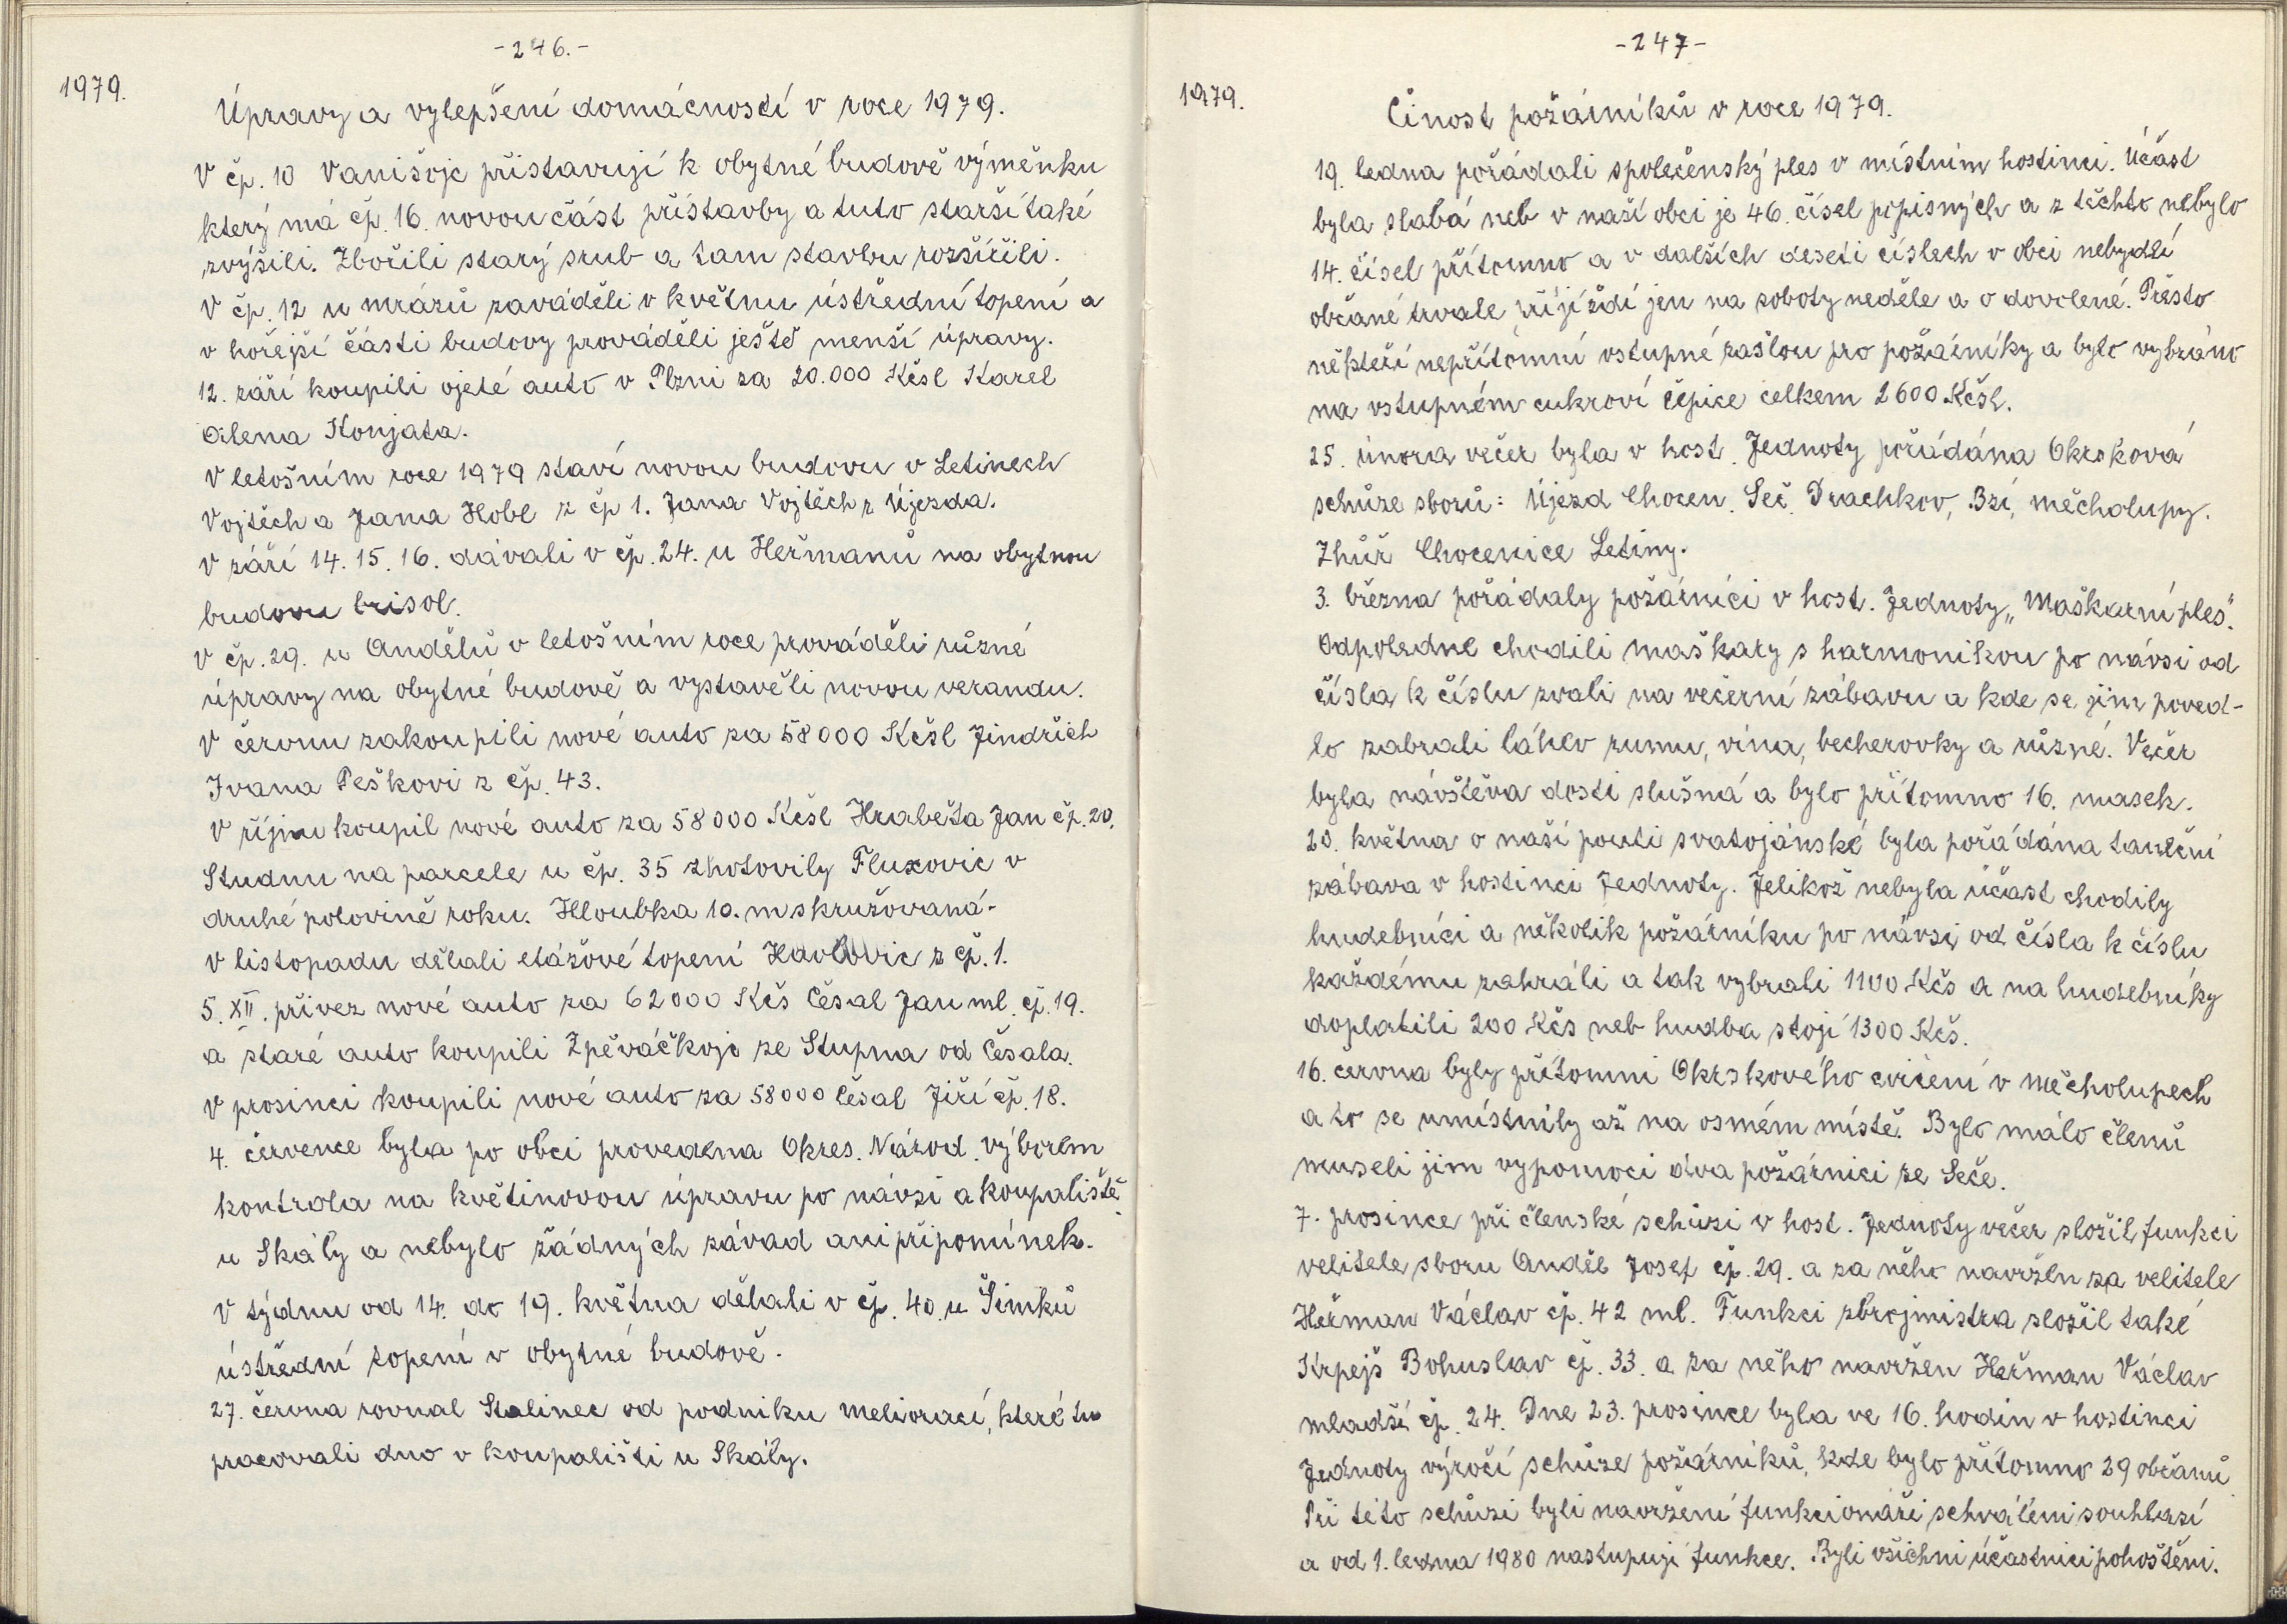 -246.-
1979.
Úpravy a vylepšení domácností v roce 1979.
V čp. 10 Vanišoje přistavují k obytné budově výměnku
který má čp. 16. novou část přístavby a tuto starší také
zvýšili. Zbořili starý srub a tam stavbu rozšířili.
V čp. 12 u mrázů zaváděli v květnu ústřední topení a
v hořejší části budovy prováděli ještě menší úpravy.
12. září koupili ojeté auto v Plzni za 20.000 Kčsl Karel
Alena Konjata.
V letošním roce 1979 staví novou budovu v Letinech
Vojtěch a Jana Hobl z čp 1. Jana Vojtěch z Újezda.
V září 14. 15. 16. dávali v čp. 24. u Heřmanů na obytnou
budovu brisol.
V čp. 29. u Andělů v letošním roce prováděli různé
úpravy na obytné budově a vystavěli novou verandu.
V červnu zakoupili nové auto za 58000 Kčsl Jindřich
Ivana Peškovi z čp. 43.
V říjnu koupil nové auto za 58000 Kčsl Hraběta Jan čp. 20.
Studnu na parcele u čp. 35 zhotovily Fluxovic v
druhé polovině roku. Hloubka 10. m skružovaná-
v listopadu dělali etážové topení z čp. 1.
5. XII. přivez nové auto za 62000 Kčs Česal Jan ml. čp. 19.
a staré auto koupili Zpěváčkoje ze Stupna od Česala.
V prosinci koupili nové auto za 58000 Česal Jiří čp. 18.
4. července byla po obci provedena Okres. Národ. výborem
kontrola na květinovou úpravu po návsi a koupaliště
u Skály a nebylo žádných závad ani připomínek.
V týdnu od 14. do 19. května dělali v čp. 40. u Šimků
ústřední topení v obytné budově.
27. června rovnal Stalinec od podniku meliorací, které tu
pracovali dno v koupališti u Skály.
-247-
1979.
Činost požárníků v roce 1979.
19. ledna pořádali společenský ples v místním hostinci. Účast
byla slabá neb v naší obci je 46. čísel popisných a z těchto nebylo
14. čísel přítomno a v dalších deseti číslech v obci nebydlí
občané trvale přijíždí jen na soboty neděle a o dovolené. Přesto
někteří nepřítomní vstupné zašlou pro požárníky a bylo vybráno
na vstupném cukroví čepice celkem 2600 Kčsl.
25. února večer byla v host. Jednoty pořádána Okrsková
schůze sborů: Újezd Chocen. Seč. Drachkov, Bzí, měcholupy.
Zhůř Chocenice Letiny.
3. března pořádaly požárníci v host. Jednoty „Maškarní ples".
Odpoledne chodili maškary s harmonikou po návsi od
čísla k číslu zvali na večerní zábavu a kde se jim poved-
lo zabrali láhev rumu, vína, becherovky a různé. Večer
byla návštěva dosti slušná a bylo přítomno 16. masek.
20. května o naší pouti svatojánské byla pořádána taneční
zábava v hostinci Jednoty. Jelikož nebyla účast chodily
hudebníci a několik požárníku po návsi od čísla k číslu
každému zahráli a tak vybrali 1100 Kčs a na hudebníky
doplatili 200 Kčs neb hudba stojí 1300 Kčs.
16. června byly přítomni Okrskového cvičení v Měcholupech
a to se umístnily až na osmém místě. Bylo málo členů
museli jim vypomoci dva požárnici ze Seče.
7. prosince při členské schůzi v host. Jednoty večer složil funkci
velitele sboru Anděl Josef čp. 29. a za něho navržen za velitele
Heřman Václav čp. 42 ml. Funkci zbrojmistra složil také
Krpejš Bohuslav čp. 33. a za něho navržen Heřman Václav
mladší čp. 24. Dne 23. prosince byla ve 16. hodin v hostinci
Jednoty výročí schůze požárníků, kde bylo přítomno 29 občanů.
Při této schůzi byli navržení funkcionáři schváleni souhlasí
a od 1. ledna 1980 nastupují funkce. Byli všichni účastnici pohoštěni.